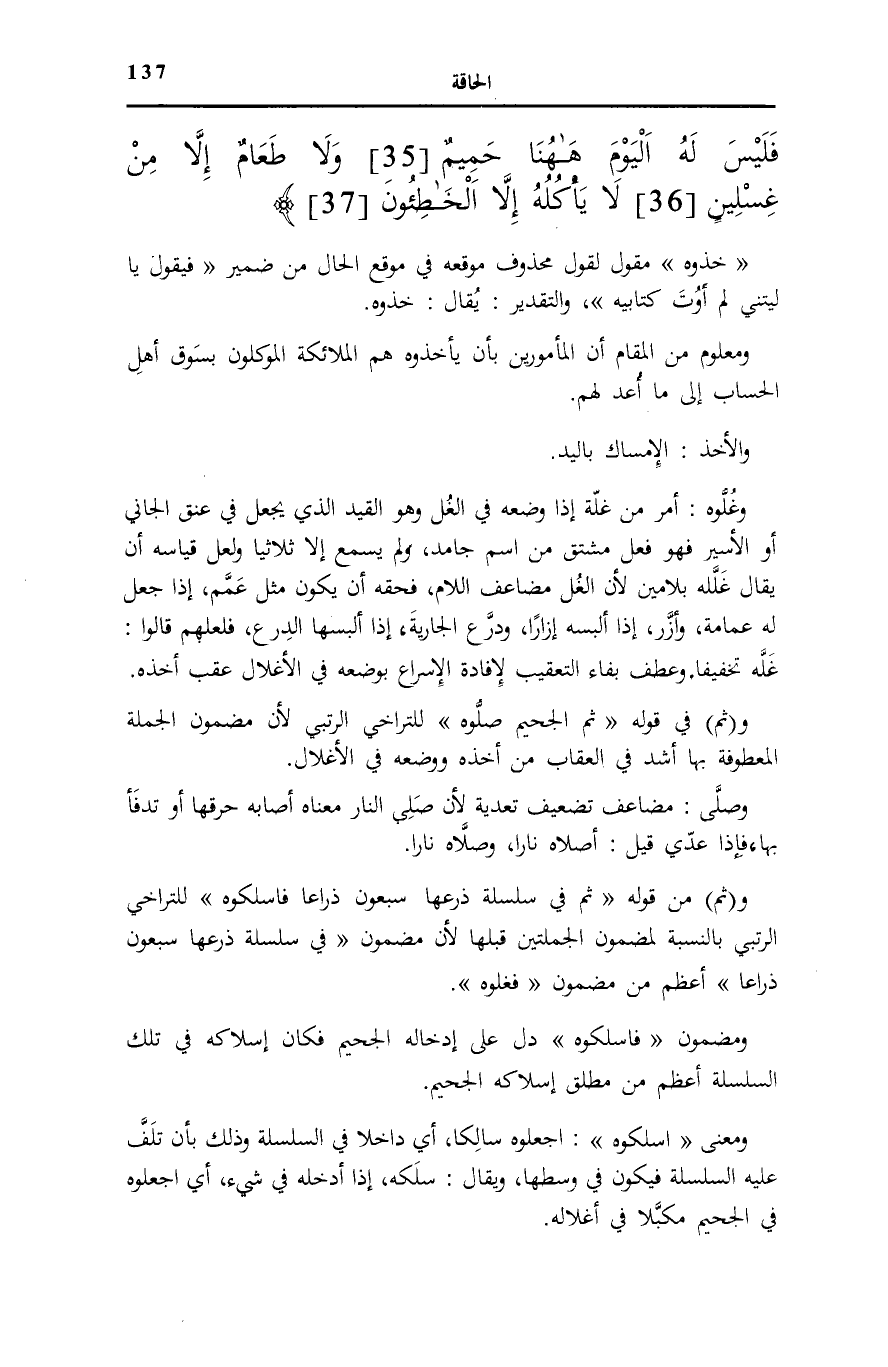 137
الحاقة
فَلَيْسَ لَهُ اَلْيَوْمَ هَـٰهُنَا حَمِيمٌ [35] وَلَا طَعَامٌ إِلَّا مِنْ
غِسْلِينٍ [36] لَا يَأْكُلُهُ إِلَّا اَلْخَـٰطِئُونَ [37] ﴾
« خذوه » مقول لقول محذوف موقعه في موقع الحال من ضمير « فيقول يا
ليتني لم أُوتَ كتابيه »، والتقدير : يُقال : خذوه.
ومعلوم من المقام أن المأمورين بأن يأخذوه هم الملائكة الموكلون بسَوق أهلِ
الحساب إلى ما أُعد لهم.
والأخذ : الإمساك باليد.
وغُلُّوه : أمر من غلّة إذا وضعه في الغُل وهو القيد الذي يجعل في عنق الجاني
أو الأسير فهو فعل مشتق من اسم جامد، ولم يسمع إلا ثلاثيا ولعل قياسه أن
يقال غَلَّله بلامين لأن الغُل مضاعف اللام، فحقه أن يكون مثل عَمَّم، إذا جعل
له عمامة، وأزَّر، إذا ألبسه إزارًا، ودرَّع الجاريةَ، إذا ألبسها الدِرع، فلعلهم قالوا :
غَلَّه تخفيفا.وعطف بفاء التعقيب لإفادة الإسراع بوضعه في الأغلال عقب أخذه.
و(ثم) في قوله « ثم الجحيم صلُّوه » للتراخي الرتبي لأن مضمون الجملة
المعطوفة بها أشد في العقاب من أخذه ووضعه في الأغلال.
وصلَّى : مضاعف تضعيف تعدية لأن صَلِي النار معناه أصابه حرقها أو تدفَأَ
بها،فإذا عدّي قيل : أصلاه نارا، وصلَّاه نارا.
و(ثم) من قوله « ثم في سلسلة ذرعها سبعون ذراعا فاسلكوه » للتراخي
الرتبي بالنسبة لمضمون الجملتين قبلها لأن مضمون « في سلسلة ذرعها سبعون
ذراعا » أعظم من مضمون « فغلوه ».
ومضمون « فاسلكوه » دل على إدخاله الجحيم فكان إسلاكه في تلك
السلسلة أعظم من مطلق إسلاكه الجحيم.
ومعنى « اسلكوه » : اجعلوه سالِكا، أي داخلا في السلسلة وذلك بأن تلَفَّ
عليه السلسلة فيكون في وسطها، ويقال : سلَكه، إذا أدخله في شيء، أي اجعلوه
في الجحيم مكبَّلا في أغلاله.